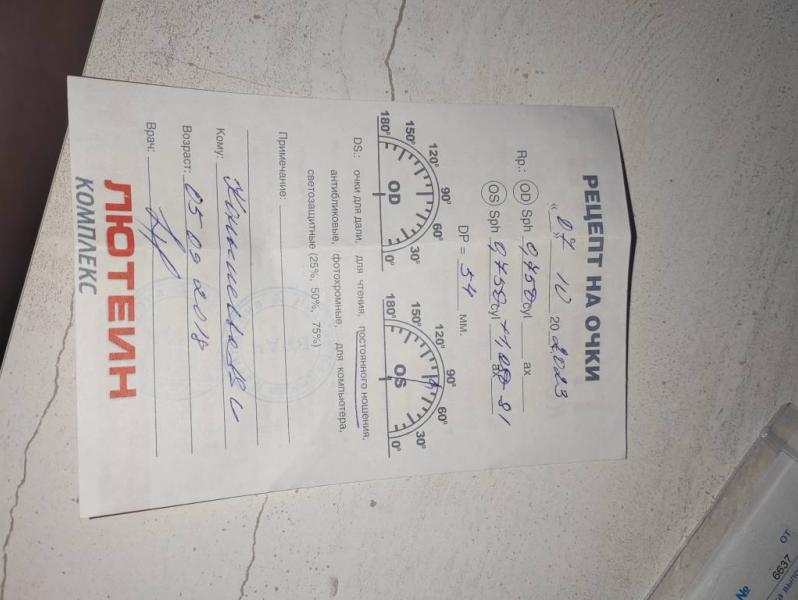 РЕЦЕПТ НА ОЧКИ
"07" 10 2023
Rp.: OD Sph 0,75D cyl ax
OS Sph 0,75D cyl +1,0D ax 81
DP = 54 мм.
180° 150° 120° 90° 60° 30° 0° OD
180° 150° 120° 90° 60° 30° 0° OS
DS.: очки для дали, для чтения, постоянного ношения,
антибликовые, фотохромные, для компьютера,
светозащитные (25%, 50%, 75%)
Примечание:
Кому:
Возраст: 05 09 2018
Врач:
ЛЮТЕИН
КОМПЛЕКС
№
6637 от